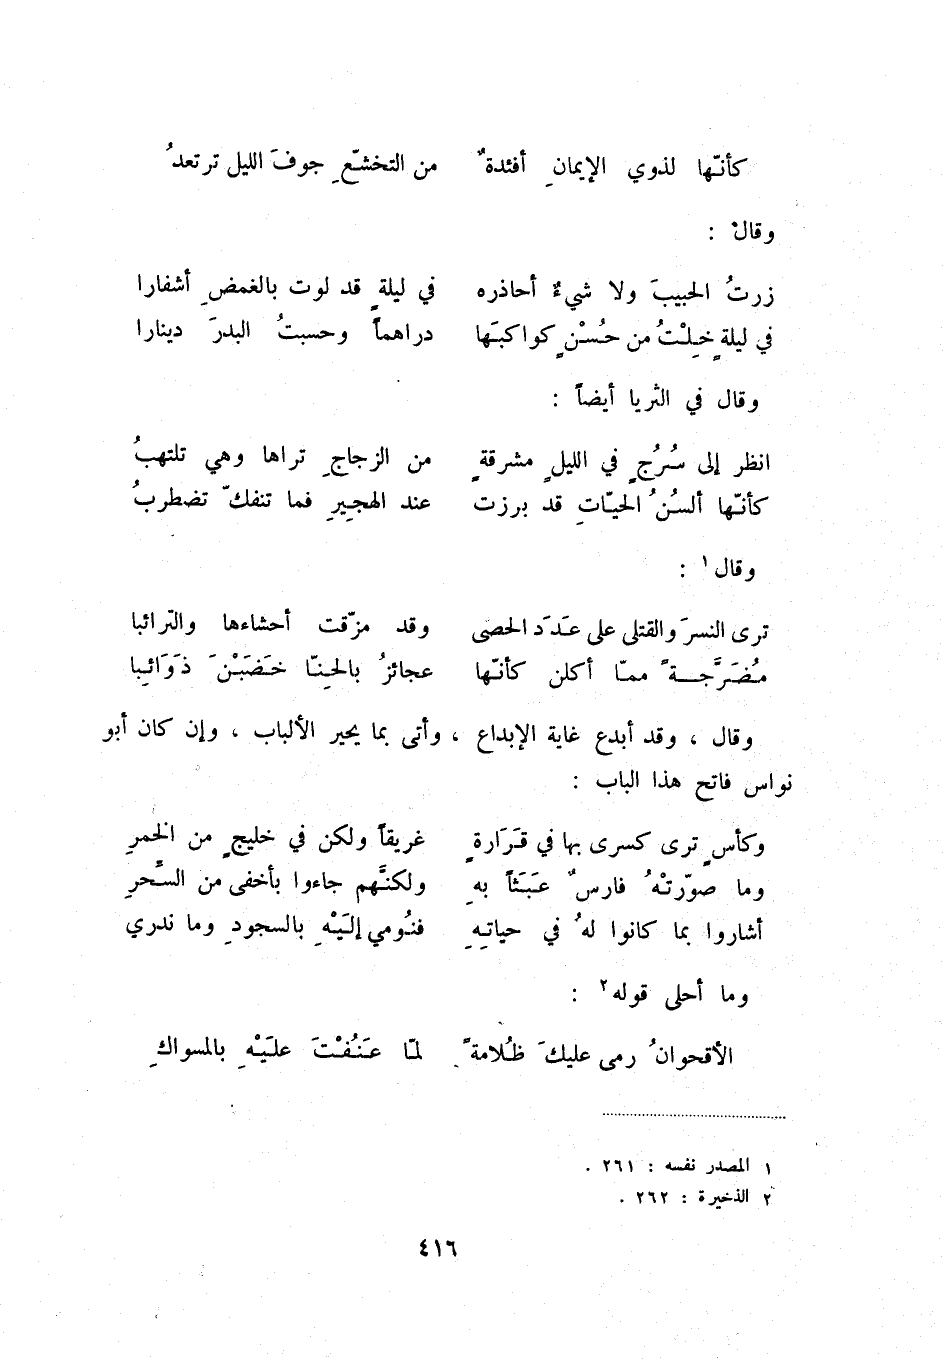 كأنّها لذوي الإيمانِ أفئدةٌ من التخشّعِ جوفَ الليل ترتعدُ
وقال :
زرتُ الحبيبَ ولا شيءٌ أحاذره في ليلةٍ قد لوت بالغمضِ أشفارا
في ليلةٍ خِلْتُ من حُسْنٍ كواكبَها دراهماً وحسبتُ البدرَ دينارا
وقال في الثريا أيضاً :
انظر إلى سُرُجٍ في الليلِ مشرقةٍ من الزجاجِ تراها وهي تلتهبُ
كأنّها ألسُنُ الحيّاتِ قد برزت عند الهجيرِ فما تنفكّ تضطربُ
وقال ١ :
ترى النسرَ والقتلى على عَدَدِ الحصى وقد مزّقت أحشاءها والترائبا
مُضَرَّجةً ممّا أكلن كأنّها عجائزُ بالحِنّا خَضَبْنَ ذَوَائِبا
وقال ، وقد أبدع غاية الإبداع ، وأتى بما يحير الألباب ، وإن كان أبو
نواس فاتح هذا الباب :
وكأسٍ ترى كسرى بها في قَرَارةٍ غريقاً ولكن في خليجٍ من الخمرِ
وما صوّرتْهُ فارسٌ عَبَثاً بهِ ولكنَّهم جاءوا بأخفى من السِّحرِ
أشاروا بما كانوا لهُ في حياتِهِ فنُومي إليَْهِ بالسجودِ وما ندري
وما أحلى قوله ٢ :
الأقحوانُ رمى عليكَ ظُلامةً لمّا عَنُفْتَ عليَْهِ بالمسواكِ
١ المصدر نفسه : ٢٦١ .
٢ الذخيرة : ٢٦٢ .
٤١٦